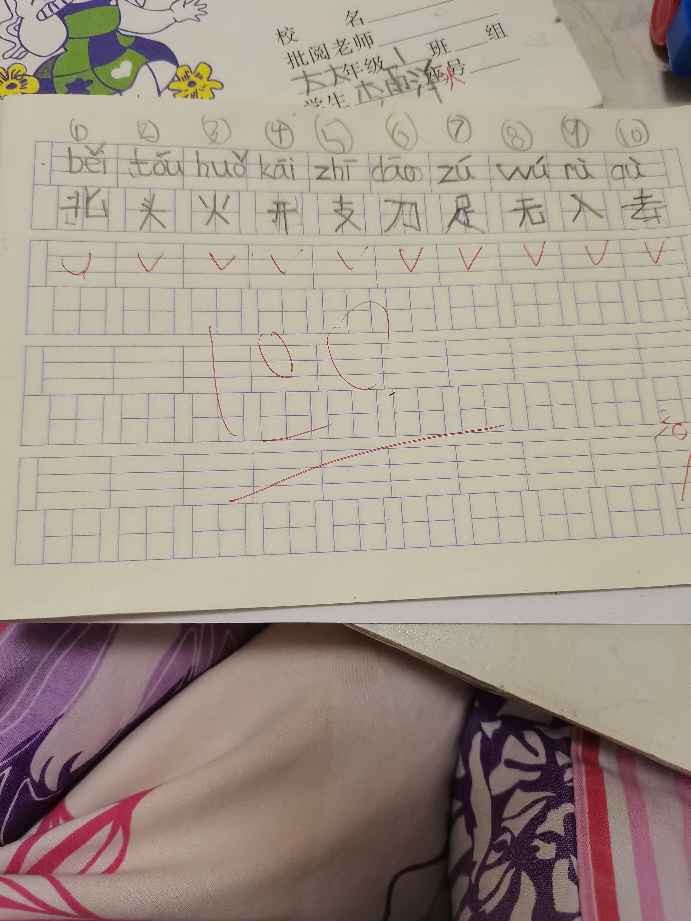 校 名
批阅老师
大大年级 1 班 组
学生 座号
① ② ③ ④ ⑤ ⑥ ⑦ ⑧ ⑨ ⑩
běi tóu huǒ kāi zhī dāo zú wú rù qù
北 头 火 开 支 刀 足 无 入 去
100